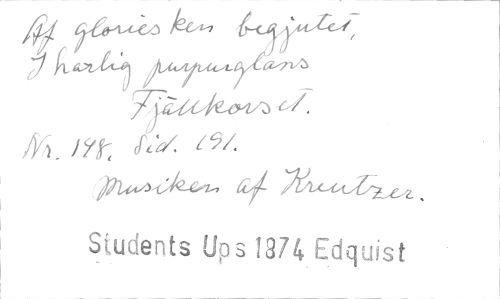 Af glories ken begjutet,
I härlig purpurglans
Fjällkorset.
Nr. 148, Sid. 191.
Musiken af Kreutzer.
Students Ups 1874 Edquist